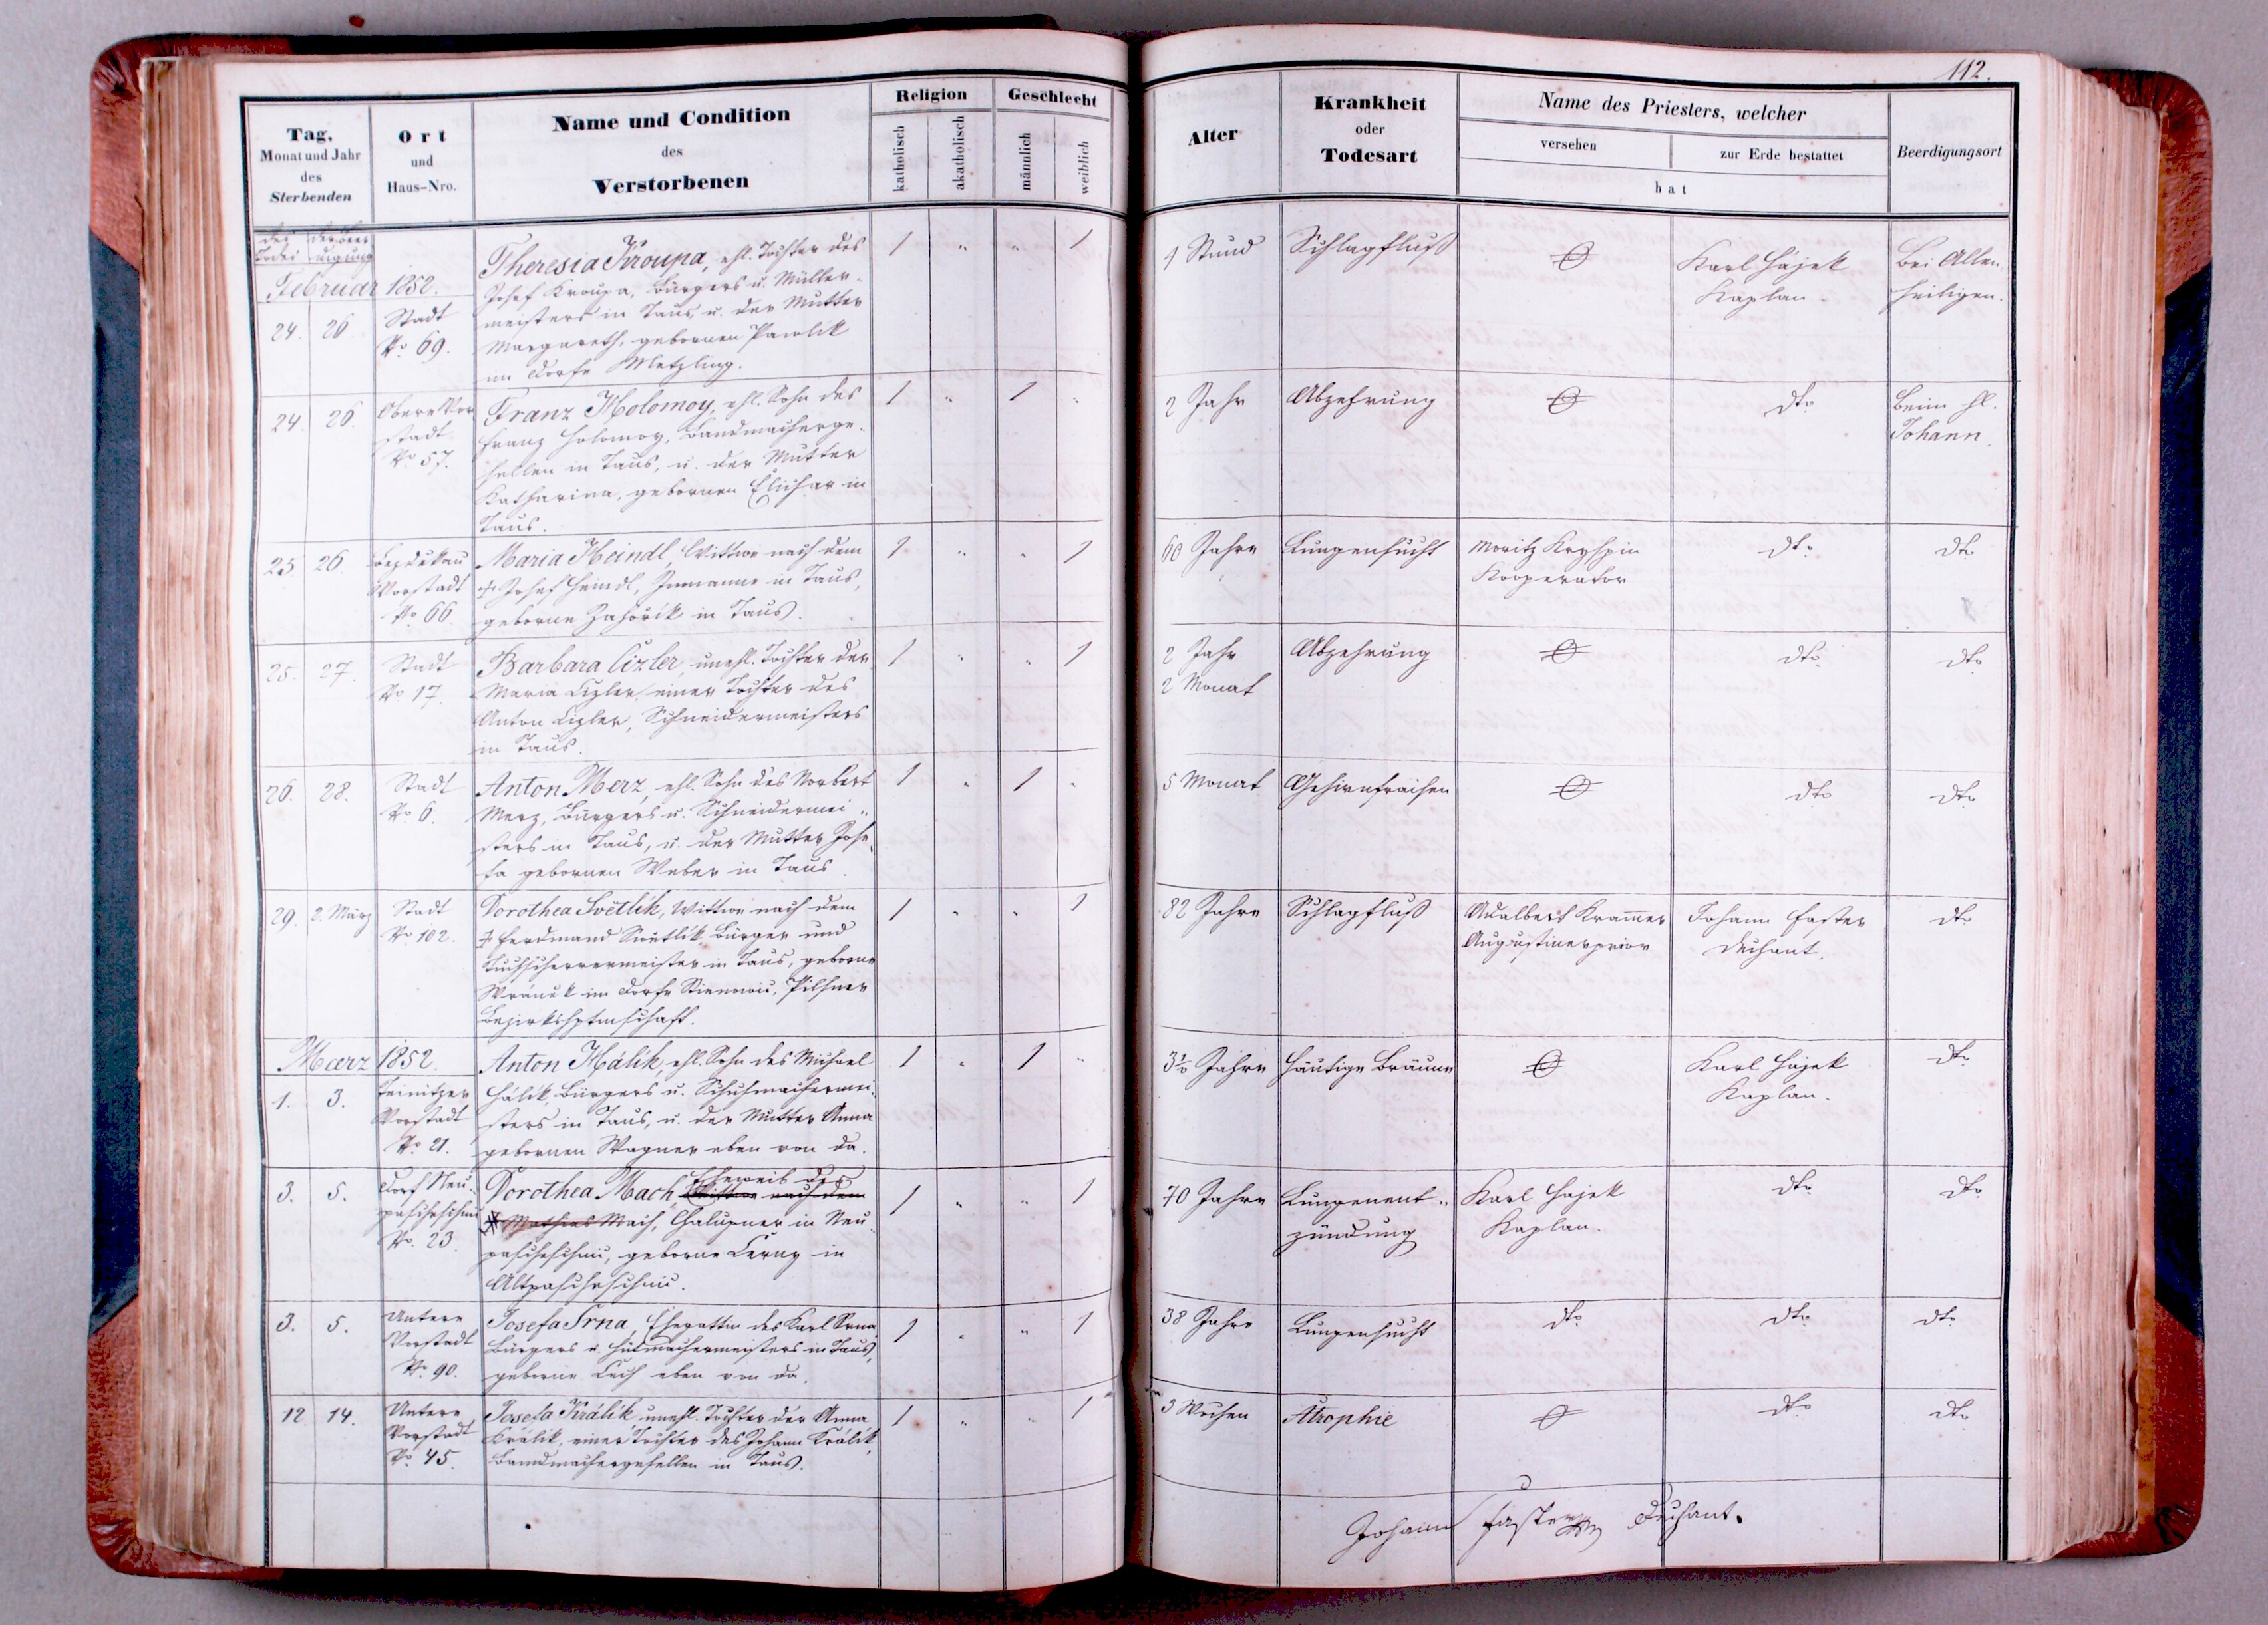 112.
Tag,
Monat und Jahr
des
Sterbenden
Ort
und
Haus-Nro.
Name und Condition
des
Verstorbenen
Religion
katholisch
akatholisch
Geschlecht
männlich
weiblich
Alter
Krankheit
oder
Todesart
Name des Priesters, welcher
versehen
zur Erde bestattet
hat
Beerdigungsort
des Todes
Februar 1852.
24. 26.
Stadt
No 69.
Theresia Kroupa, ehl. Tochter des
Josef Kroupa, Bürgers u. Müller-
meisters in Taus, u. der Mutter
Margareth, gebornen Pawlik
im Dorfe Metzling.
1 " " 1
1 Stund
Schlagfluß
Karl Hájek
Kaplan.
Bei Allen
heiligen.
24. 26.
Obere Vor
stadt
No 57.
Franz Holomoy, ehl. Sohn des
Franz Holomoy, Bandmacherge-
sellen in Taus, u. der Mutter
Katharina, gebornen in
Taus.
1 " 1 "
2 Jahr
Abzehrung
dto
Beim hl.
Johann.
25 26.
Bezdekau
Vorstadt
No 66.
Maria Heindl, Wittwe nach dem
† Josef Heindl, Inmanne in Taus,
geborne Zahořík in Taus.
1 " " 1
60 Jahre
Lungensucht
Moritz Kryspin
Kooperator
dto
dto
25. 27.
Stadt
No 17.
Barbara Cizler, unehl. Tochter der
Maria Cizler, einer Tochter des
Anton Cizler, Schneidermeisters
in Taus.
1 " " 1
2 Jahr
2 Monat
Abzehrung
dto
dto
26. 28.
Stadt
No 6.
Anton Merz, ehl. Sohn des Norbert
Merz, Bürgers u. Schneidermei-
sters in Taus, u. der Mutter Jose-
fa gebornen Weber in Taus.
1 " 1 "
5 Monat
Gehirnfraisen
dto
dto
29. 2. März
Stadt
No 102.
Dorothea Světlik, Wittwe nach dem
† Ferdinand Swětlik, Bürger und
Tuchscherermeister in Taus, geborne
im Dorfe Pilsner
Bezirkshptmschaft.
1 " " 1
82 Jahre
Schlagfluß
Adalbert Kramer
Augustinerprior
Johann Faster
Dechant.
dto
Maerz 1852.
1. 3.
Teinitzer
Vorstadt
No 21.
Anton Hálik, ehl. Sohn des Michael
Hálik, Bürgers u. Schuhmachermei-
sters in Taus, u. der Mutter Anna
gebornen Wagner eben von da.
1 " 1 "
3½ Jahre
Häutige Bräune
Karl Hájek
Kaplan.
dto
3. 5.
Dorf Neu-
No. 23.
Dorothea Mach Eheweib des
Wittwe nach dem
Mathias Mach, Chalupner in Neu-
geborne Černy in
1 " " 1
70 Jahre
Lungenent-
zündung
Karl Hajek
Kaplan.
dto
dto
3. 5.
Untere
Vorstadt
No. 90.
Josefa Srna, Ehegattin des Karl Srna,
Bürgers u. Hutmachermeisters in Taus,
geborne Cech eben von da.
1 " " 1
38 Jahre
Lungensucht
dto
dto
dto
12 14.
Untere
Vorstadt
No. 45.
Josefa Králik unehl. Tochter der Anna
Králik, einer Tochter des Johann Králik,
Bandmachergesellen in Taus.
1 " " 1
3 Wochen
Atrophie
dto
dto
Johann Faster Dechant.